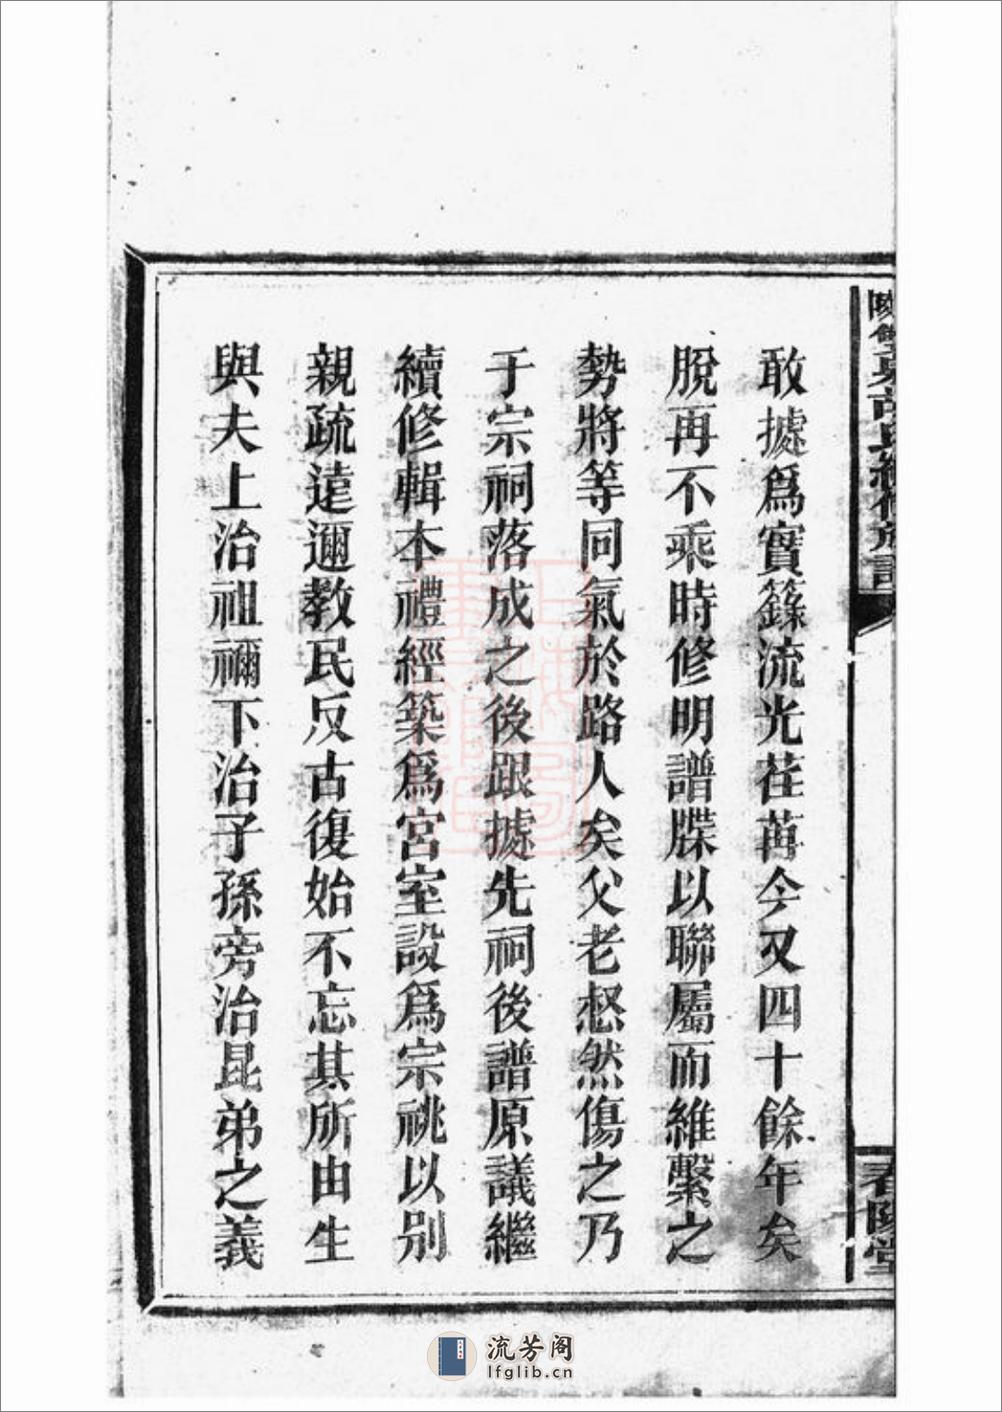 敢據爲實籙流光荏苒今又四十餘年矣
脫再不乘時修明譜牒以聯屬而維繫之
勢將等同氣於路人矣父老惄然傷之乃
于宗祠落成之後跟據先祠後譜原議繼
續修輯本禮經築爲宮室設爲宗祧以別
親疏遠邇教民反古復始不忘其所由生
與夫上治祖禰下治子孫旁治昆弟之義
春陵堂
流芳阁
lfglib.cn